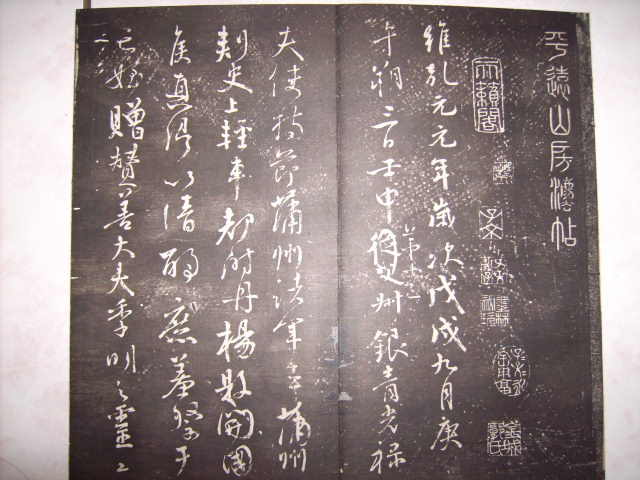 平遠山房灋帖
天籟閣
維乾元元年歲次戊戌九月庚
午朔三日壬申第十三從父叔銀青光祿
夫使持節蒲州諸軍事蒲州
刺史上輕車都尉丹楊縣開國
侯真卿以清酌庶羞祭于
亡姪贈贊善大夫季明之靈曰